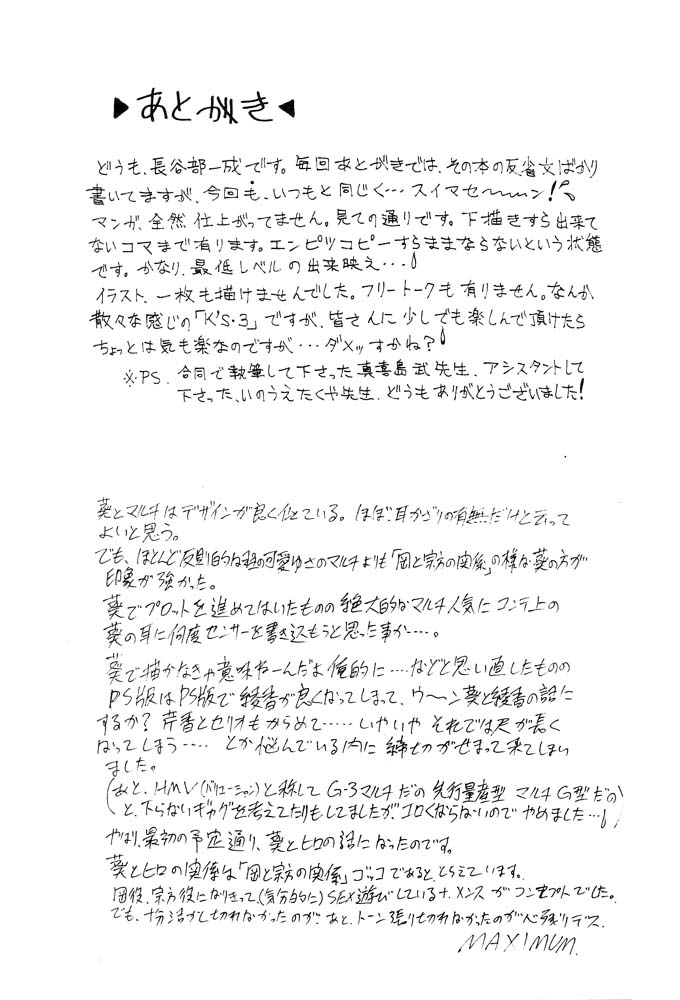 ▶あとがき◀
どうも、長谷部一成です。毎回あとがきでは、その本の反省文ばかり
書いてますが、今回も、いつもと同じく…スイマセ〜〜ン!
マンガ、全然仕上がってません。見ての通りです。下描きすら出来て
ないコマまで有ります。エンピツコピーすらままならないという状態
です。かなり、最低レベルの出来映え…!
イラスト、一枚も描けませんでした。フリートークも有りません。なんか、
散々な感じの「K'S・3」ですが、皆さんに少しでも楽しんで頂けたら
ちょっとは気も楽なのですが…ダメッすかね?!
※PS. 合同で執筆して下さった真喜島武先生、アシスタントして
下さった、いのうえたくや先生、どうもありがとうございました!
葵とマルチはデザインが良く似ている。ほぼ、耳かざりの有無だけと云って
よいと思う。
でも、ほとんど反則的な可愛ゆさのマルチよりも「岡と宗方の関係」の様な葵の方が
印象が強かった。
葵でプロットを進めてはいたものの絶大的なマルチ人気にコンテ上の
葵の耳に何度センサーを書き込もうと思った事か…。
葵で描かなきゃ意味ねーんだよ俺的に…などと思い直したものの
PS版はPS版で綾香が良くなってしまって、ウ〜ン葵と綾香の話に
するか? 芹香とセリオもからめて……いやいやそれでは尺が長く
なってしまう……とか悩んでいる内に締切がせまって来てしまい
ました。
(あと、HMV(バリエーション)と称してG-3マルチだの先行量産型マルチG型だの
と、下らないギャグを考えてたりもしてましたがエロくならないのでやめました…!)
やはり、最初の予定通り、葵とヒロの話になったのです。
葵とヒロの関係は「岡と宗方の関係」ゴッコであると、とらえています。
岡役、宗方役になりきって、(気分的に)SEX遊びしている+メンスがコンセプトでした。
でも、十分活かし切れなかったのが、あと、トーン張り切れなかったのが心残りデス。
MAXIMUM.